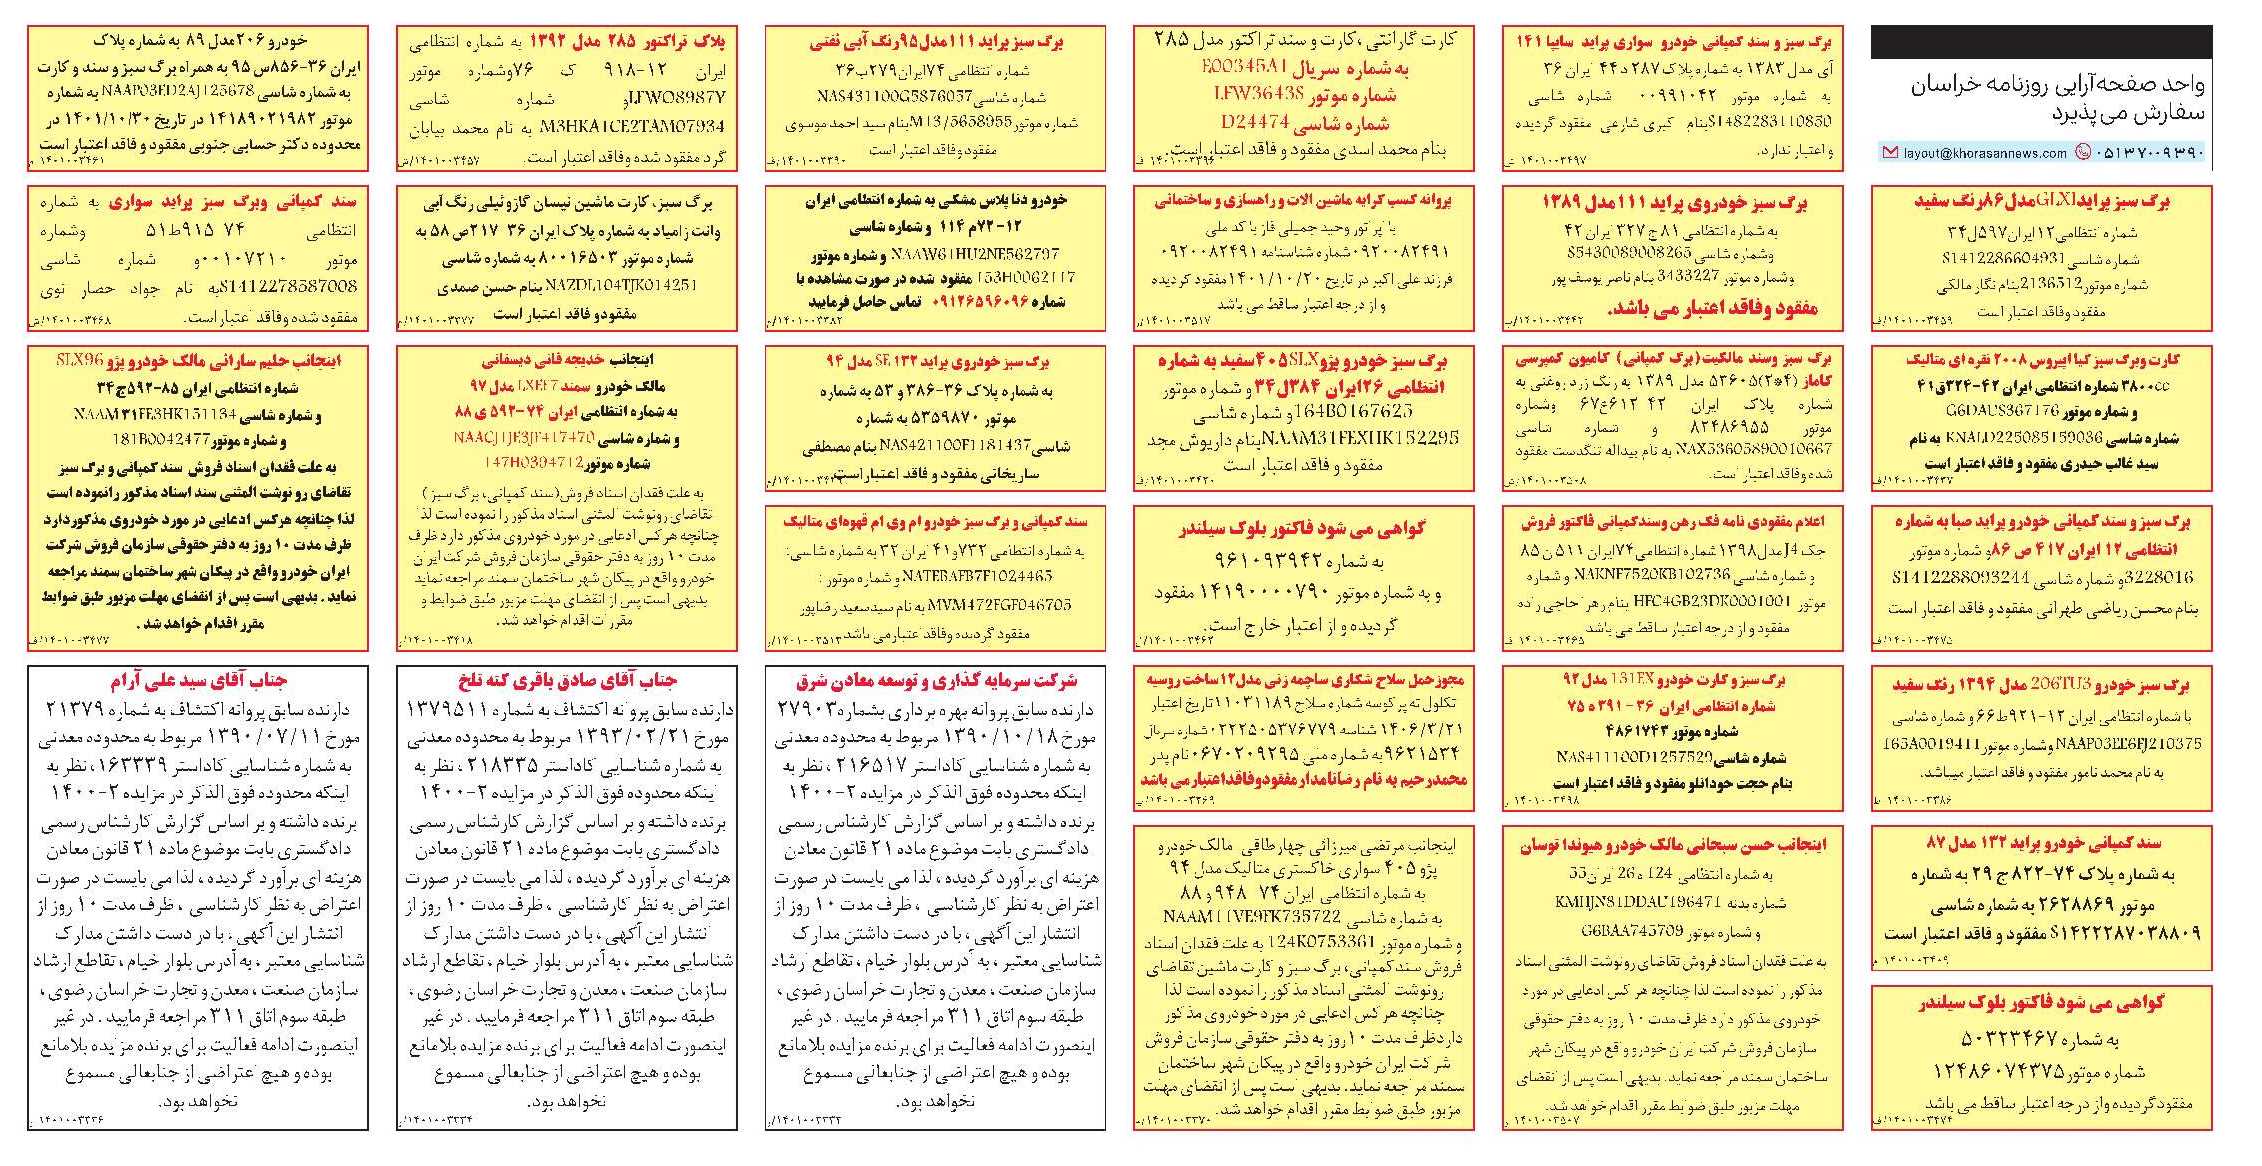 واحد صفحه‌آرایی روزنامه خراسان
سفارش می‌پذیرد
layout@khorasannews.com ۰۵۱۳۷۰۰۹۳۹۰
برگ سبز پراید GLXI مدل ۸۶ رنگ سفید
شماره انتظامی ۱۲ ایران ۵۹۷ ل ۳۴
شماره شاسی S1412286604931
شماره موتور 2136512 بنام نگار مالکی
مفقود وفاقد اعتبار است
۱۴۰۱۰۰۳۴۵۹/ف
کارت وبرگ سبز کیا اپیروس ۲۰۰۸ نقره ای متالیک
۳۸۰۰cc شماره انتظامی ایران ۴۲-۳۲۴ق۴۱
و شماره موتور G6DAUS367176
شماره شاسی KNALD225085159036 به نام
سید غالب حیدری مفقود و فاقد اعتبار است
۱۴۰۱۰۰۳۴۳۷/ف
برگ سبز و سند کمپانی خودرو پراید صبا به شماره
انتظامی ۱۲ ایران ۴۱۷ ص ۸۶ و شماره موتور
3228016 و شماره شاسی S1412288093244
بنام محسن ریاضی طهرانی مفقود و فاقد اعتبار است
۱۴۰۱۰۰۳۴۷۵/ف
برگ سبز خودرو 206TU3 مدل ۱۳۹۴ رنگ سفید
با شماره انتظامی ایران ۱۲-۹۲۱ط۶۶ و شماره شاسی
NAAP03EE6FJ210375 وشماره موتور 165A0019411
به نام محمد نامور مفقود و فاقد اعتبار میباشد.
۱۴۰۱۰۰۳۳۸۶ ط
سند کمپانی خودرو پراید ۱۳۲ مدل ۸۷
به شماره پلاک ۷۴-۸۲۲ ج ۲۹ به شماره
موتور ۲۶۲۸۸۶۹ به شماره شاسی
S۱۴۲۲۲۸۷۰۳۸۸۰۹ مفقود و فاقد اعتبار است
۱۴۰۱۰۰۳۴۰۹ م
گواهی می شود فاکتور بلوک سیلندر
به شماره ۵۰۳۲۳۴۶۷
شماره موتور ۱۲۴۸۶۰۷۴۳۷۵
مفقودگردیده واز درجه اعتبار ساقط می باشد
۱۴۰۱۰۰۳۴۷۴/ف
برگ سبز و سند کمپانی خودرو سواری پراید سایپا ۱۴۱
آی مدل ۱۳۸۳ به شماره پلاک ۲۸۷ د ۴۴ ایران ۳۶
به شماره موتور ۰۰۹۹۱۰۴۲ شماره شاسی
S1482283110850 بنام کبری شارعی مفقود گردیده
و اعتبار ندارد.
۱۴۰۱۰۰۳۴۹۷ ش
برگ سبز خودروی پراید ۱۱۱ مدل ۱۳۸۹
به شماره انتظامی ۸۱ ج ۳۲۷ ایران ۴۲
وشماره شاسی S5430089008265
وشماره موتور 3433227 بنام ناصر یوسف پور
مفقود وفاقد اعتبار می باشد.
۱۴۰۱۰۰۳۴۴۲/پ
برگ سبز وسند مالکیت(برگ کمپانی) کامیون کمپرسی
کاماز (۴*۲)۵۳۶۰۵ مدل ۱۳۸۹ به رنگ زرد روغنی به
شماره پلاک ایران ۴۲ ۶۱۲ع۶۷ وشماره
موتور ۸۲۴۸۶۹۵۵ و شماره شاسی
NAX53605890010667 به نام یداله تنگدست مفقود
شده وفاقد اعتبار است.
۱۴۰۱۰۰۳۵۰۸/ش
اعلام مفقودی نامه فک رهن وسندکمپانی فاکتور فروش
جک J4 مدل ۱۳۹۸ شماره انتظامی ۷۴ ایران ۵۱۱ ن ۸۵
و شماره شاسی NAKNF7520KB102736 و شماره
موتور HFC4GB23DK0001001 بنام زهرا حاجی زاده
مفقود و از درجه اعتبار ساقط می باشد
۱۴۰۱۰۰۳۴۶۵ ف
برگ سبز و کارت خودرو 131EX مدل ۹۲
شماره انتظامی ایران ۳۶-۳۹۱ ه ۷۵
شماره موتور ۴۸۶۱۷۴۳
شماره شاسی NAS411100D1257529
بنام حجت خودانلو مفقود و فاقد اعتبار است
۱۴۰۱۰۰۳۴۹۸ ر
اینجانب حسن سبحانی مالک خودرو هیوندا توسان
به شماره انتظامی 124 ه 26 ایران 55
شماره بدنه KMHJN81DDAU196471
و شماره موتور G6BAA745709
به علت فقدان اسناد فروش تقاضای رونوشت المثنی اسناد
مذکور را نموده است لذا چنانچه هر کس ادعایی در مورد
خودروی مذکور دارد ظرف مدت ۱۰ روز به دفتر حقوقی
سازمان فروش شرکت ایران خودرو واقع در پیکان شهر
ساختمان سمند مراجعه نماید. بدیهی است پس از انقضای
مهلت مزبور طبق ضوابط مقرر اقدام خواهد شد.
۱۴۰۱۰۰۳۵۰۷ و
کارت گارانتی ،کارت و سند تراکتور مدل ۲۸۵
به شماره سریال E00345A1
شماره موتور LFW3643S
شماره شاسی D24474
بنام محمد اسدی مفقود و فاقد اعتبار است.
۱۴۰۱۰۰۳۳۹۶ ف
پروانه کسب کرایه ماشین الات و راهسازی و ساختمانی
با اپراتور وحید جمیلی فاز با کد ملی
۰۹۲۰۰۸۲۴۹۱ شماره شناسنامه ۰۹۲۰۰۸۲۴۹۱
فرزند علی اکبر در تاریخ ۱۴۰۱/۱۰/۲۰ مفقود گردیده
و از درجه اعتبار ساقط می باشد
۱۴۰۱۰۰۳۵۱۷/ر
برگ سبز خودرو پژو ۴۰۵SLX سفید به شماره
انتظامی ۲۶ ایران ۳۸۴ ل ۳۴ و شماره موتور
164B0167625 و شماره شاسی
NAAM31FEXHK152295 بنام داریوش مجد
مفقود و فاقد اعتبار است
۱۴۰۱۰۰۳۴۲۰/ف
گواهی می شود فاکتور بلوک سیلندر
به شماره ۹۶۱۰۹۳۹۴۲
و به شماره موتور ۱۴۱۹۰۰۰۰۷۹۰ مفقود
گردیده و از اعتبار خارج است.
۱۴۰۱۰۰۳۴۶۲
مجوزحمل سلاح شکاری ساچمه زنی مدل ۱۲ ساخت روسیه
تکلول ته پر کوسه شماره سلاح ۱۱۰۳۱۱۸۹ تاریخ اعتبار
۱۴۰۶/۲/۲۱ شناسه ۰۲۲۲۵۰۵۳۷۶۷۷۹ شماره سریال
۹۶۲۱۵۳۴ به شماره ملی ۰۶۷۰۲۰۹۲۹۵ نام پدر
محمدرحیم به نام رضانامدار مفقودوفاقداعتبارمی باشد
۱۴۰۱۰۰۳۲۶۹/پ
اینجانب مرتضی میرزائی چهارطاقی مالک خودرو
پژو ۴۰۵ سواری خاکستری متالیک مدل ۹۴
به شماره انتظامی ایران ۷۴ ۹۴۸ و ۸۸
به شماره شاسی NAAM11VE9FK735722
و شماره موتور 124K0753361 به علت فقدان اسناد
فروش سندکمپانی، برگ سبز و کارت ماشین تقاضای
رونوشت المثنی اسناد مذکور را نموده است لذا
چنانچه هر کس ادعایی در مورد خودروی مذکور
داردظرف مدت ۱۰ روز به دفتر حقوقی سازمان فروش
شرکت ایران خودرو واقع در پیکان شهر ساختمان
سمند مراجعه نماید. بدیهی است پس از انقضای مهلت
مزبور طبق ضوابط مقرر اقدام خواهد شد.
۱۴۰۱۰۰۳۳۷۰
برگ سبز پراید ۱۱۱ مدل ۹۵ رنگ آبی نفتی
شماره انتظامی ۷۴ ایران ۲۷۹ ب ۳۶
شماره شاسی NAS431100G5876057
شماره موتور M13/5658955 بنام سید احمد موسوی
مفقود وفاقد اعتبار است
۱۴۰۱۰۰۳۳۹۰/ف
خودرو دنا پلاس مشکی به شماره انتظامی ایران
۱۲-۷۲م ۱۱۴ و شماره شاسی
NAAW61HU2NE562797 و شماره موتور
153H0062117 مفقود شده در صورت مشاهده با
شماره ۰۹۱۲۶۵۹۶۰۹۶ تماس حاصل فرمایید
۱۴۰۱۰۰۳۳۸۲/م
برگ سبز خودروی پراید ۱۳۲ SE مدل ۹۴
به شماره پلاک ۳۶-۳۸۶ و ۵۳ به شماره
موتور ۵۳۵۹۸۷۰ به شماره
شاسی NAS421100F1181437 بنام مصطفی
ساریخانی مفقود و فاقد اعتبار است
سند کمپانی و برگ سبز خودرو ام وی ام قهوه‌ای متالیک
به شماره انتظامی ۷۳۲ و ۴۱ ایران ۳۲ به شماره شاسی:
NATEBAFB7F1024465 و شماره موتور :
MVM472FGF046705 به نام سیدسعید رضاپور
مفقود گردیده وفاقد اعتبارمی باشد
۱۴۰۱۰۰۳۵۱۳/م
شرکت سرمایه گذاری و توسعه معادن شرق
دارنده سابق پروانه بهره برداری بشماره ۲۷۹۰۳
مورخ ۱۳۹۰/۱۰/۱۸ مربوط به محدوده معدنی
به شماره شناسایی کاداستر ۲۱۶۵۱۷ ، نظر به
اینکه محدوده فوق الذکر در مزایده ۲-۱۴۰۰
برنده داشته و بر اساس گزارش کارشناس رسمی
دادگستری بابت موضوع ماده ۲۱ قانون معادن
هزینه ای برآورد گردیده ، لذا می بایست در صورت
اعتراض به نظر کارشناسی ، ظرف مدت ۱۰ روز از
انتشار این آگهی ، با در دست داشتن مدارک
شناسایی معتبر ، به آدرس بلوار خیام ، تقاطع ارشاد
سازمان صنعت ، معدن و تجارت خراسان رضوی ،
طبقه سوم اتاق ۳۱۱ مراجعه فرمایید . در غیر
اینصورت ادامه فعالیت برای برنده مزایده بلامانع
بوده و هیچ اعتراضی از جنابعالی مسموع
نخواهد بود.
۱۴۰۱۰۰۳۲۳۲/
پلاک تراکتور ۲۸۵ مدل ۱۳۹۲ به شماره انتظامی
ایران ۱۲-۹۱۸ ک ۷۶ وشماره موتور
LFWO8987Y و شماره شاسی
M3HKA1CE2TAM07934 به نام محمد بیابان
گرد مفقود شده وفاقد اعتبار است.
۱۴۰۱۰۰۳۴۵۷/ش
برگ سبز، کارت ماشین نیسان گازوئیلی رنگ آبی
وانت زامیاد به شماره پلاک ایران ۳۶ ۲۱۷ص ۵۸ به
شماره موتور ۸۰۰۱۶۵۰۳ به شماره شاسی
NAZDL104TJK014251 بنام حسن صمدی
مفقودو فاقد اعتبار است
۱۴۰۱۰۰۳۲۷۷/م
اینجانب خدیجه فانی دیسفانی
مالک خودرو سمند LXEF7 مدل ۹۷
به شماره انتظامی ایران ۷۴-۵۹۲ ی ۸۸
و شماره شاسی NAACJ1JE3JF417470
شماره موتور 147H0394712
به علت فقدان اسناد فروش(سند کمپانی، برگ سبز)
تقاضای رونوشت المثنی اسناد مذکور را نموده است لذا
چنانچه هرکس ادعایی در مورد خودروی مذکور دارد ظرف
مدت ۱۰ روز به دفتر حقوقی سازمان فروش شرکت ایران
خودرو واقع در پیکان شهر ساختمان سمند مراجعه نماید
بدیهی است پس از انقضای مهلت مزبور طبق ضوابط و
مقررات اقدام خواهد شد.
۱۴۰۱۰۰۳۴۱۸/
جناب آقای صادق باقری کته تلخ
دارنده سابق پروانه اکتشاف به شماره ۱۳۷۹۵۱۱
مورخ ۱۳۹۳/۰۲/۲۱ مربوط به محدوده معدنی
به شماره شناسایی کاداستر ۲۱۸۳۳۵ ، نظر به
اینکه محدوده فوق الذکر در مزایده ۲-۱۴۰۰
برنده داشته و بر اساس گزارش کارشناس رسمی
دادگستری بابت موضوع ماده ۲۱ قانون معادن
هزینه ای برآورد گردیده ، لذا می بایست در صورت
اعتراض به نظر کارشناسی ، ظرف مدت ۱۰ روز از
انتشار این آگهی ، با در دست داشتن مدارک
شناسایی معتبر ، به آدرس بلوار خیام ، تقاطع ارشاد
سازمان صنعت ، معدن و تجارت خراسان رضوی ،
طبقه سوم اتاق ۳۱۱ مراجعه فرمایید . در غیر
اینصورت ادامه فعالیت برای برنده مزایده بلامانع
بوده و هیچ اعتراضی از جنابعالی مسموع
نخواهد بود.
۱۴۰۱۰۰۳۲۳۴/
خودرو ۲۰۶ مدل ۸۹ به شماره پلاک
ایران ۳۶-۸۵۶ س ۹۵ به همراه برگ سبز و سند و کارت
به شماره شاسی NAAP03ED2AJ125678 به شماره
موتور ۱۴۱۸۹۰۲۱۹۸۲ در تاریخ ۱۴۰۱/۱۰/۳۰ در
محدوده دکتر حسابی جنوبی مفقود و فاقد اعتبار است
۱۴۰۱۰۰۳۴۶۱ م
سند کمپانی وبرگ سبز پراید سواری به شماره
انتظامی ۷۴ ۹۱۵ط۵۱ وشماره
موتور ۰۰۱۰۷۲۱۰ و شماره شاسی
S1412278587008 به نام جواد حصار نوی
مفقود شده وفاقد اعتبار است.
۱۴۰۱۰۰۳۴۶۸/ش
اینجانب حلیم سارانی مالک خودرو پژو SLX96
شماره انتظامی ایران ۸۵-۵۹۲ج۳۴
و شماره شاسی NAAM31FE3HK151134
و شماره موتور 181B0042477
به علت فقدان اسناد فروش سند کمپانی و برگ سبز
تقاضای رو نوشت المثنی سند اسناد مذکور رانموده است
لذا چنانچه هرکس ادعایی در مورد خودروی مذکوردارد
ظرف مدت ۱۰ روز به دفتر حقوقی سازمان فروش شرکت
ایران خودرو واقع در پیکان شهر ساختمان سمند مراجعه
نماید . بدیهی است پس از انقضای مهلت مزبور طبق ضوابط
مقرر اقدام خواهد شد .
۱۴۰۱۰۰۳۴۷۷/ف
جناب آقای سید علی آرام
دارنده سابق پروانه اکتشاف به شماره ۲۱۳۷۹
مورخ ۱۳۹۰/۰۷/۱۱ مربوط به محدوده معدنی
به شماره شناسایی کاداستر ۱۶۳۳۳۹ ، نظر به
اینکه محدوده فوق الذکر در مزایده ۲-۱۴۰۰
برنده داشته و بر اساس گزارش کارشناس رسمی
دادگستری بابت موضوع ماده ۲۱ قانون معادن
هزینه ای برآورد گردیده ، لذا می بایست در صورت
اعتراض به نظر کارشناسی ، ظرف مدت ۱۰ روز از
انتشار این آگهی ، با در دست داشتن مدارک
شناسایی معتبر ، به آدرس بلوار خیام ، تقاطع ارشاد
سازمان صنعت ، معدن و تجارت خراسان رضوی ،
طبقه سوم اتاق ۳۱۱ مراجعه فرمایید . در غیر
اینصورت ادامه فعالیت برای برنده مزایده بلامانع
بوده و هیچ اعتراضی از جنابعالی مسموع
نخواهد بود.
۱۴۰۱۰۰۳۲۳۶